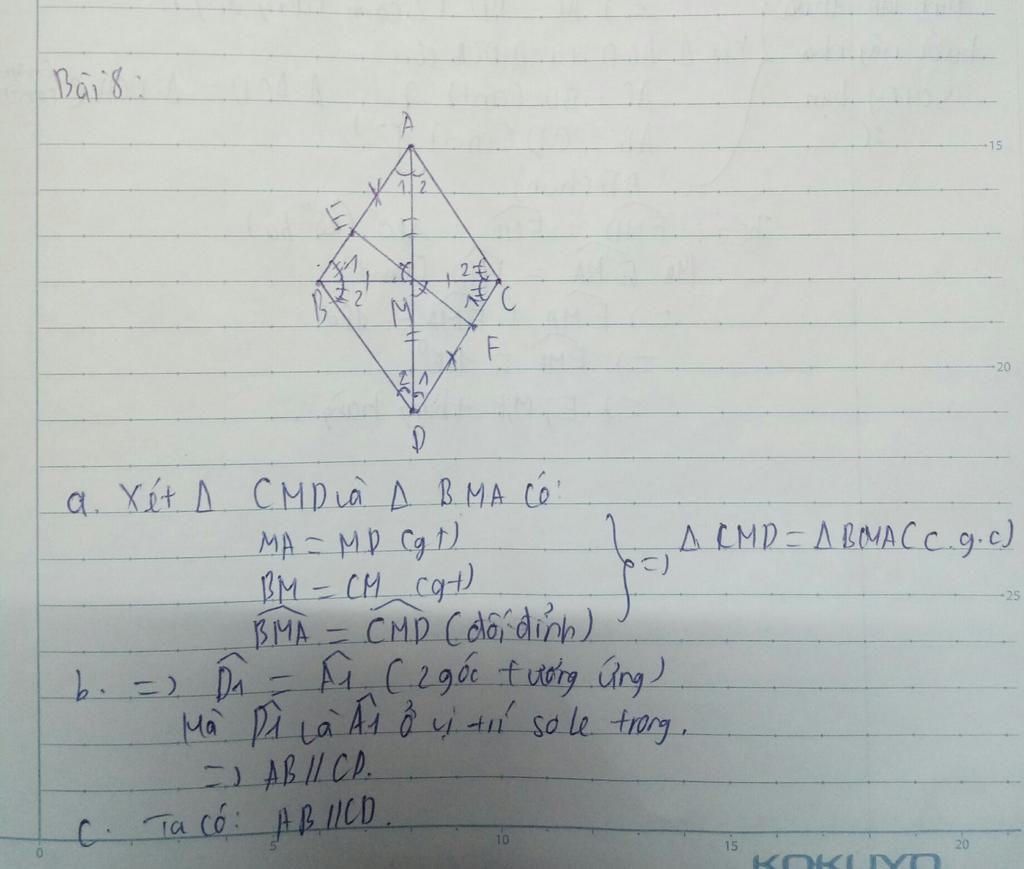 Bài 8:
A
1 2
E
1 2
B 2 M 1 C
F
2 1
D
a. Xét Δ CMD và Δ BMA có:
MA = MD (gt)
BM = CM (gt)
BMA = CMD (đối đỉnh)
} => Δ CMD = Δ BMA (c.g.c)
b. => D1 = A1 (2 góc tương ứng)
Mà D1 và A1 ở vị trí so le trong.
=> AB//CD.
c. Ta có: AB//CD.
15
20
25
0 5 10 15 20
KOKUYO